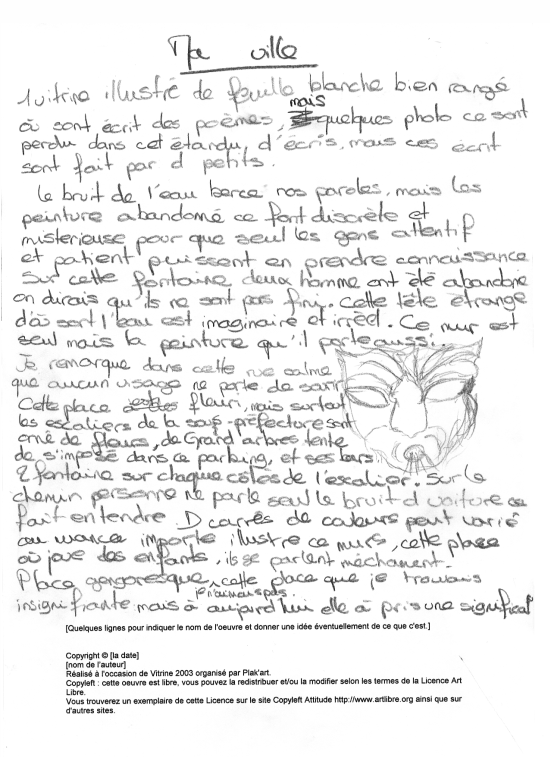 Ma ville
1 vitrine illustré de feuille blanche bien rangé
où sont écrit des poèmes, mais quelques photo ce sont
perdu dans cet étandu, d'écris, mais ces écrit
sont fait par d petits.
Le bruit de l'eau berce nos paroles, mais les
peinture abandonné ce font discrète et
misterieuse pour que seul les gens attentif
et patient puissent en prendre connaissance
Sur cette fontaine deux homme ont été abandonné
on dirais qu'ils ne sont pas fini. Cette tête étrange
d'où sort l'eau est imaginaire et irréel. Ce mur est
seul mais la peinture qu'il porte aussi.
Je remarque dans cette rue calme
que aucun visage ne porte de sourir
Cette place fleuri, mais surtout
les escaliers de la sous-préfecture sont
orné de fleurs, de Grand arbres tente
de s'imposé dans ce parking, et ses
2 fontaine sur chaque côtés de l'escalier. Sur le
chemin personne ne parle seul le bruit d voiture ce
fait entendre D carrés de couleurs peut varié
ou nuance importe illustre ce murs, cette place
où joue des enfants, ils se parlent méchament.
Place gargoresque, cette place que je trouvais
je n'aimais pas
insignifiante mais à aujourd'hui elle à pris une significat
[Quelques lignes pour indiquer le nom de l'oeuvre et donner une idée éventuellement de ce que c'est.]
Copyright © [la date]
[nom de l'auteur]
Réalisé à l'occasion de Vitrine 2003 organisé par Plak'art.
Copyleft : cette oeuvre est libre, vous pouvez la redistribuer et/ou la modifier selon les termes de la Licence Art
Libre.
Vous trouverez un exemplaire de cette Licence sur le site Copyleft Attitude http://www.artlibre.org ainsi que sur
d'autres sites.